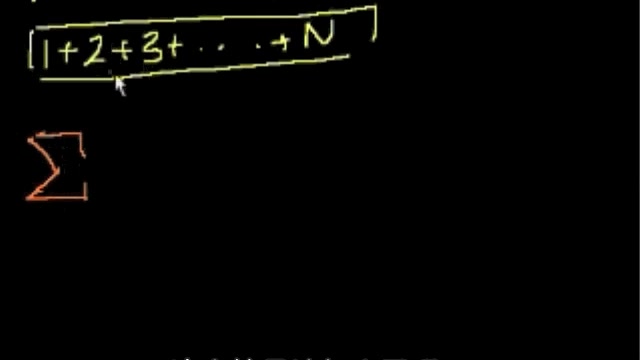 1+2+3+ . . . + N
Σ